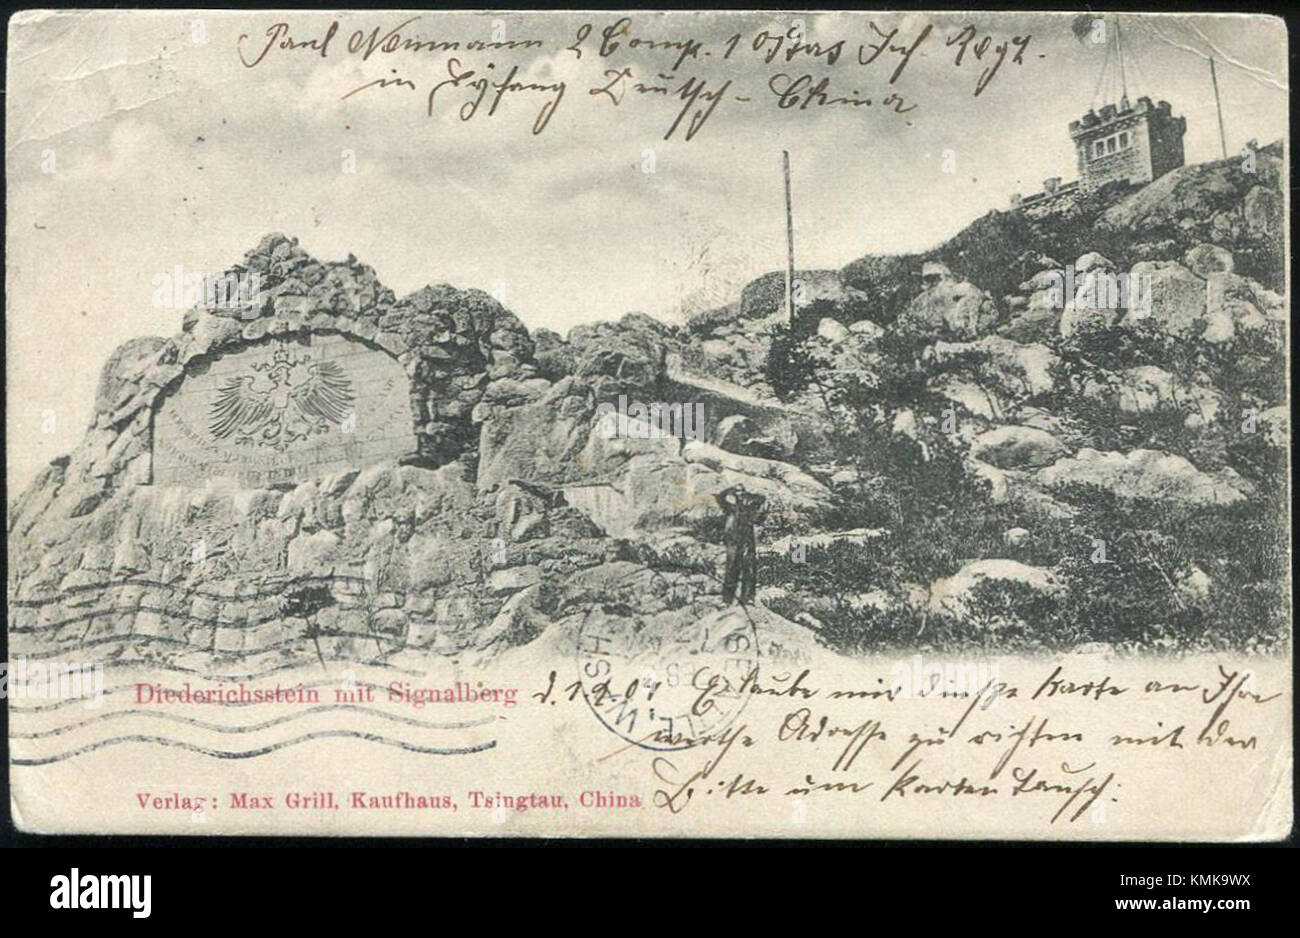 Paul Neumann 2 Comp. 1 Ostas Inf. Regt.
in Syfang Deutsch - China
Diederichsstein mit Signalberg
d. 1.9.04 Erlaube mir dieße Karte an Ihre
werthe Adresse zu richten mit der
Bitte um Karten Tausch:
Verlag: Max Grill, Kaufhaus, Tsingtau, China
SEATTLE, WASH
a alamy
alamy
Image ID: KMK9WX
www.alamy.com